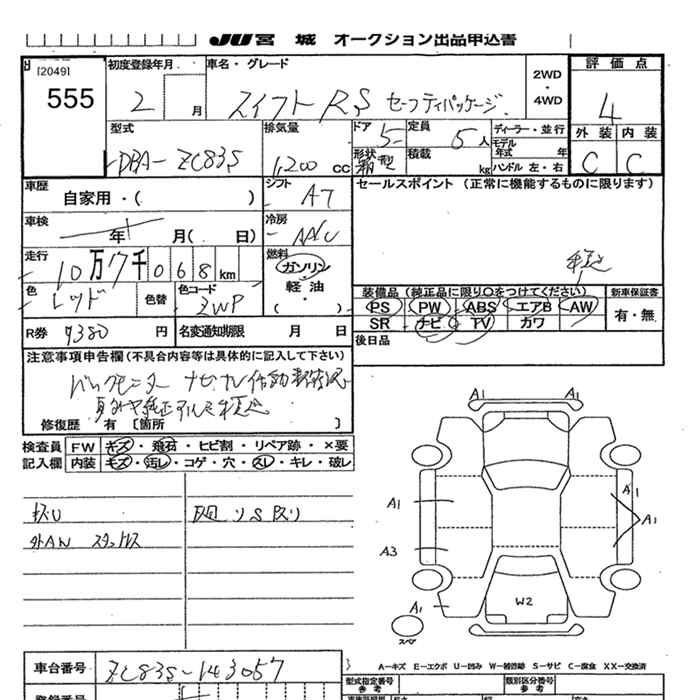 JU宮城 オークション出品申込書
[2049]
555
初度登録年月
2 月
車名・グレード
スイフト RS セーフティパッケージ
2WD
・
4WD
評価点
4
外装 内装
C C
型式
DBA-ZC83S
排気量
1,200 cc
ドア 5
定員 5人
形状 箱型
積載 kg
ディーラー・並行
モデル年式 年
ハンドル 左・右
車歴
自家用・( )
シフト AT
セールスポイント (正常に機能するものに限ります)
車検
年 月( 日)
冷房 AAC
走行
10万7千068km
燃料
ガソリン
軽油
・
( )
色 レッド
色替
色コード ZWP
装備品(純正品に限り○をつけてください)
PS PW ABS エアB AW
SR ナビ TV カワ
新車保証書
有・無
後日品
R券 9380 円
名変通知期限 月 日
注意事項申告欄(不具合内容等は具体的に記入して下さい)
修復歴 有 〔箇所 〕
検査員記入欄
FW キズ・飛石・ヒビ割・リペア跡・×要
内装 キズ・汚レ・コゲ・穴・スレ・キレ・破レ
外AN スタットレス
A1 A1
A1 A1 A1
A3
A1
W2
スペア
A-キズ E-エクボ U-凹み W-補修跡 S-サビ C-腐食 XX-交換済
車台番号 ZC83S-143057
型式指定番号
参考
類別区分番号
参考
登録番号